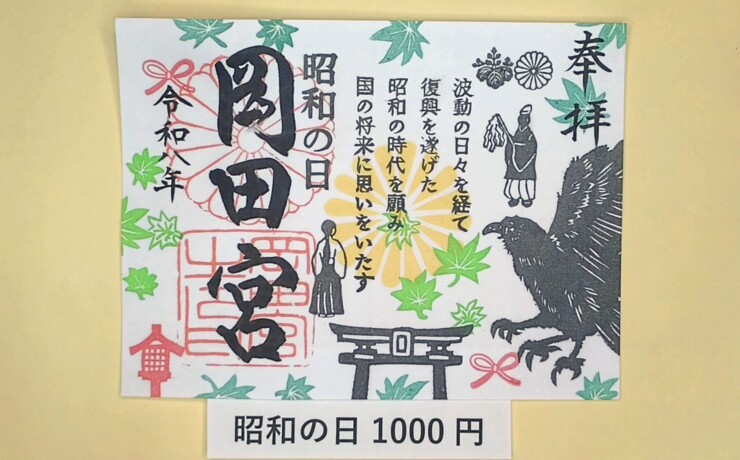 奉拝
波動の日々を経て
復興を遂げた
昭和の時代を顧み
国の将来に思いをいたす
昭和の日
岡田宮
令和八年
昭和の日 1000 円